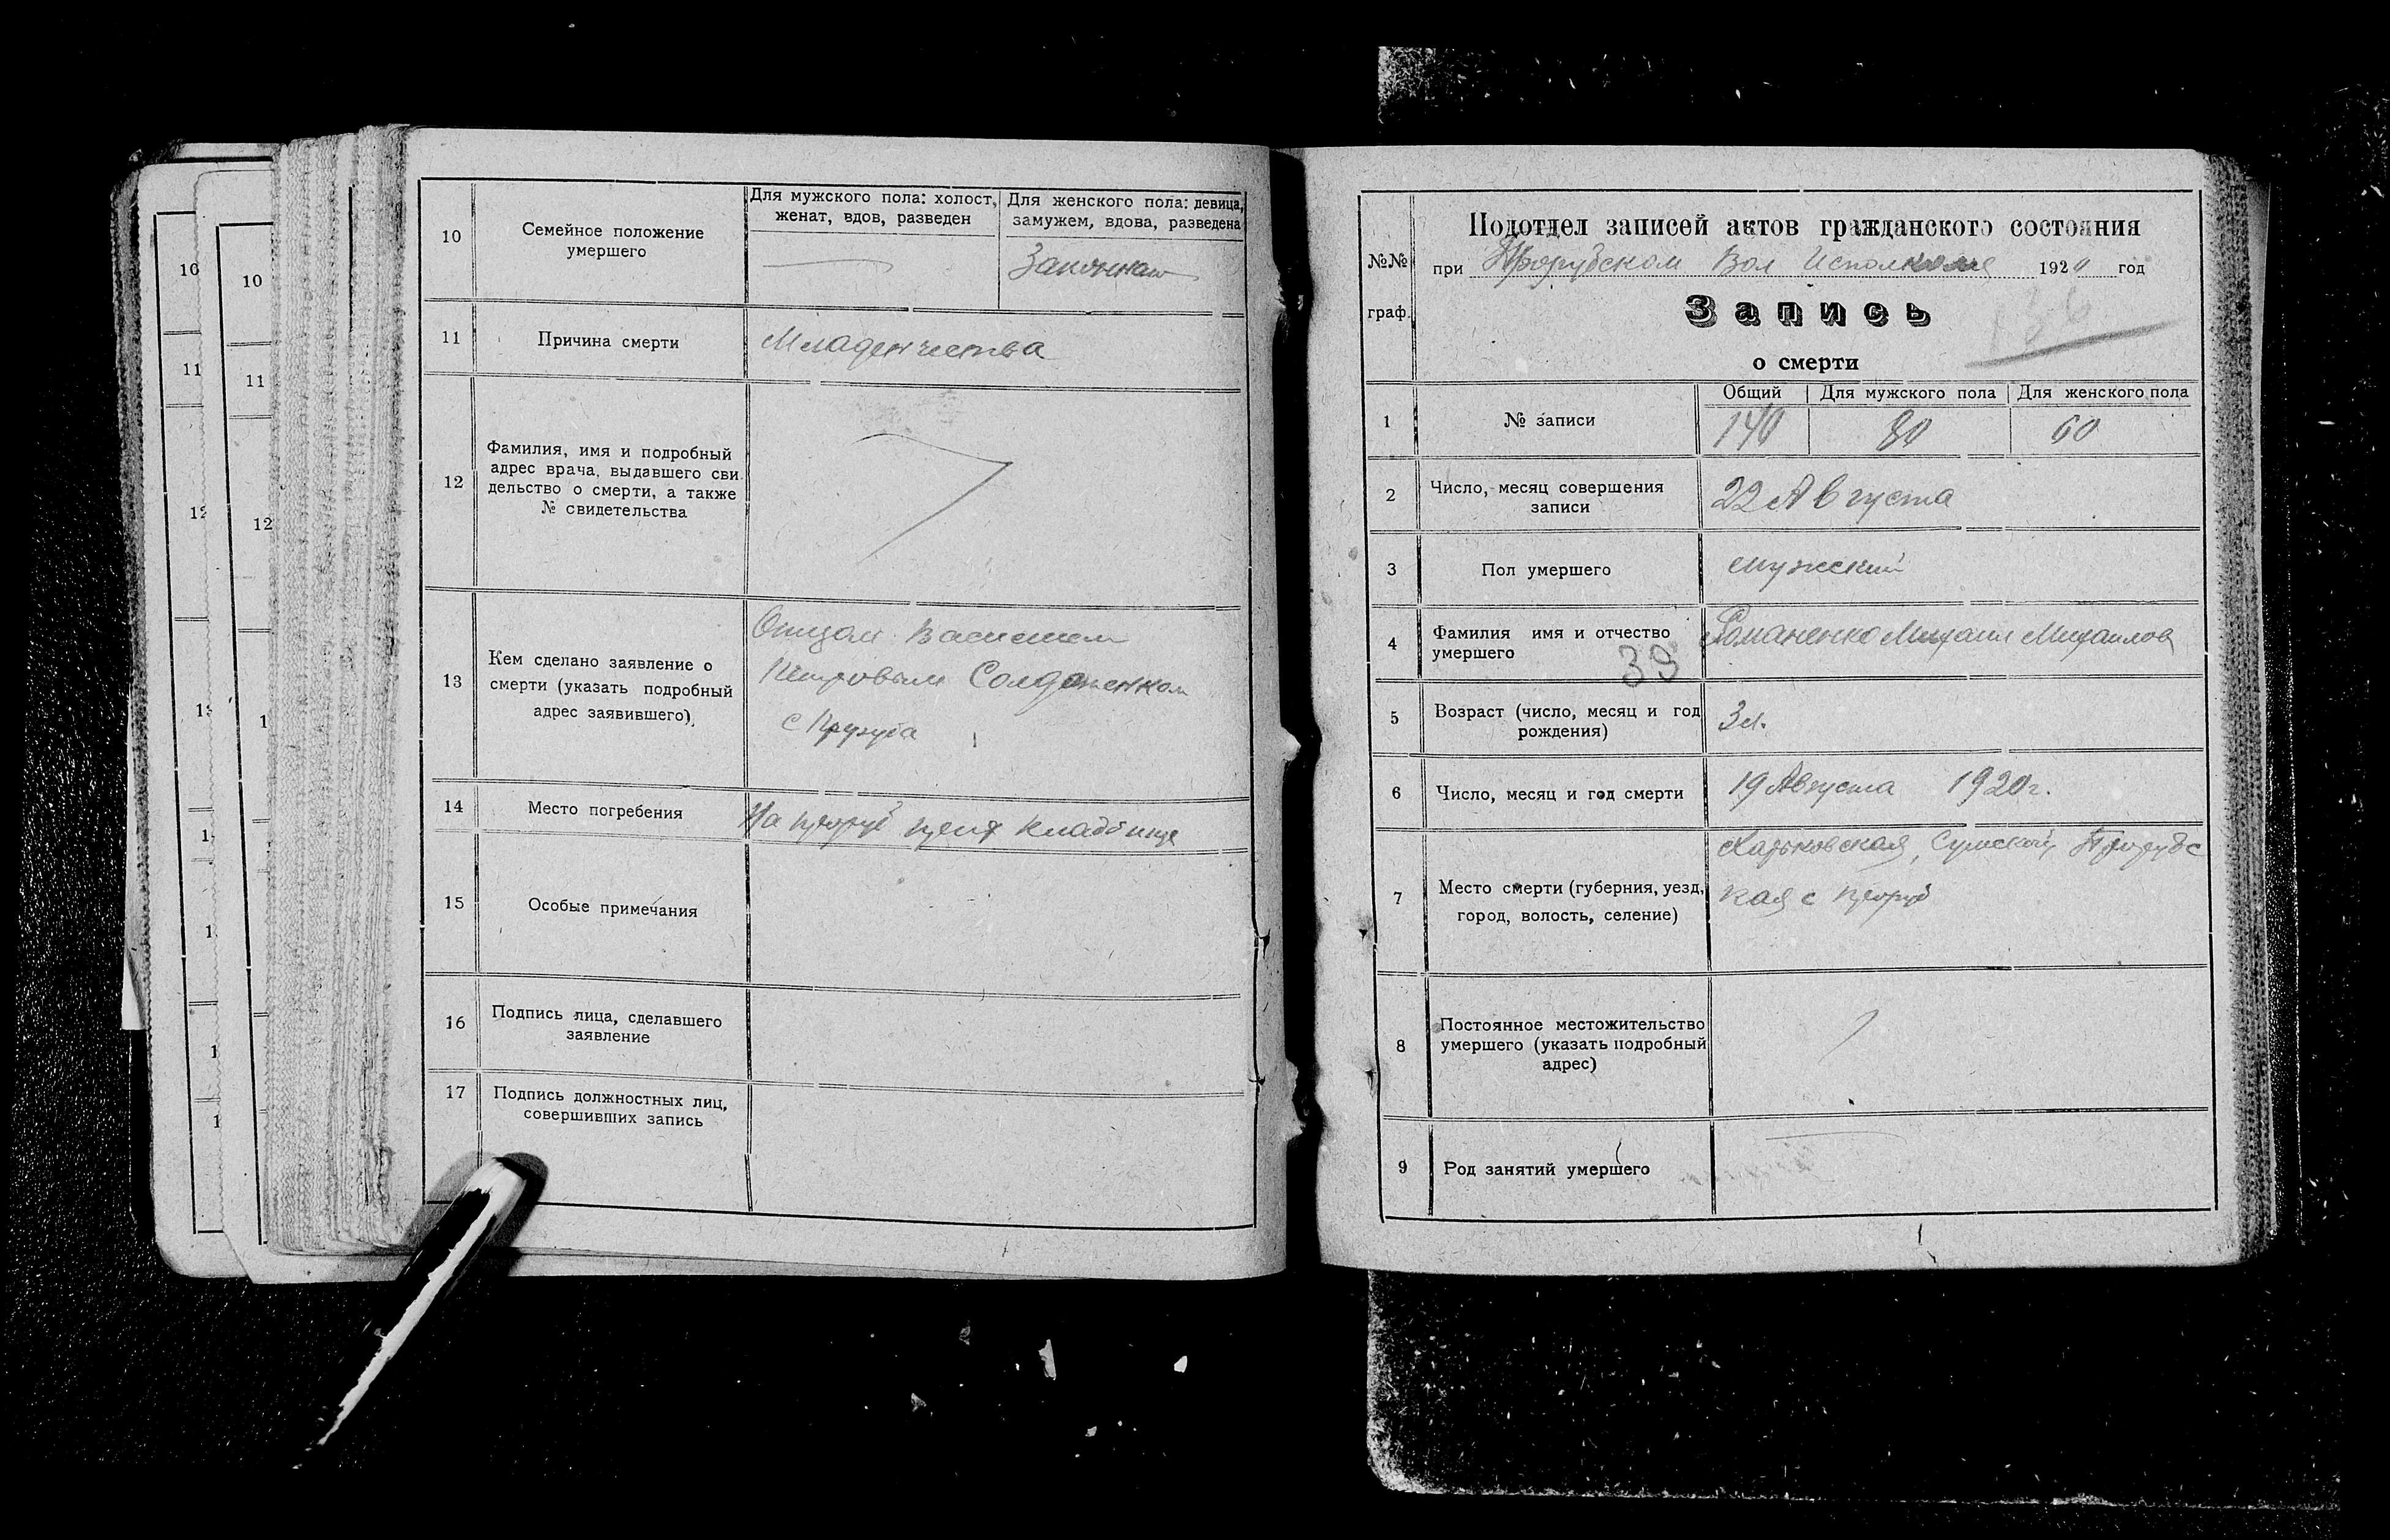 10
11
12
10
11
12
10
Семейное положение
умершего
Для мужского пола: холост,
женат, вдов, разведен
Для женского пола: девица,
замужем, вдова, разведена
11
Причина смерти
Младенчества
12
Фамилия, имя и подробный
адрес врача, выдавшего сви
дельство о смерти, а также
№ свидетельства
13
Кем сделано заявление о
смерти (указать подробный
адрес заявившего)
Отцом Василием
Петровым
14
Место погребения
На кладбище
15
Особые примечания
16
Подпись лица, сделавшего
заявление
17
Подпись должностных лиц,
совершивших запись
№№
граф.
Подотдел записей актов гражданского состояния
при Вол Исполкоме 1920 год
Запись
о смерти
1
№ записи
Общий
Для мужского пола
Для женского пола
140
80
60
2
Число, месяц совершения
записи
22 Августа
3
Пол умершего
мужский
4
Фамилия имя и отчество
умершего
39
Романенко Михаил Михаилов
5
Возраст (число, месяц и год
рождения)
3 л.
6
Число, месяц и год смерти
19 Августа 1920 г.
7
Место смерти (губерния, уезд,
город, волость, селение)
Харьковская, Сумской,
кая с
8
Постоянное местожительство
умершего (указать подробный
адрес)
9
Род занятий умершего